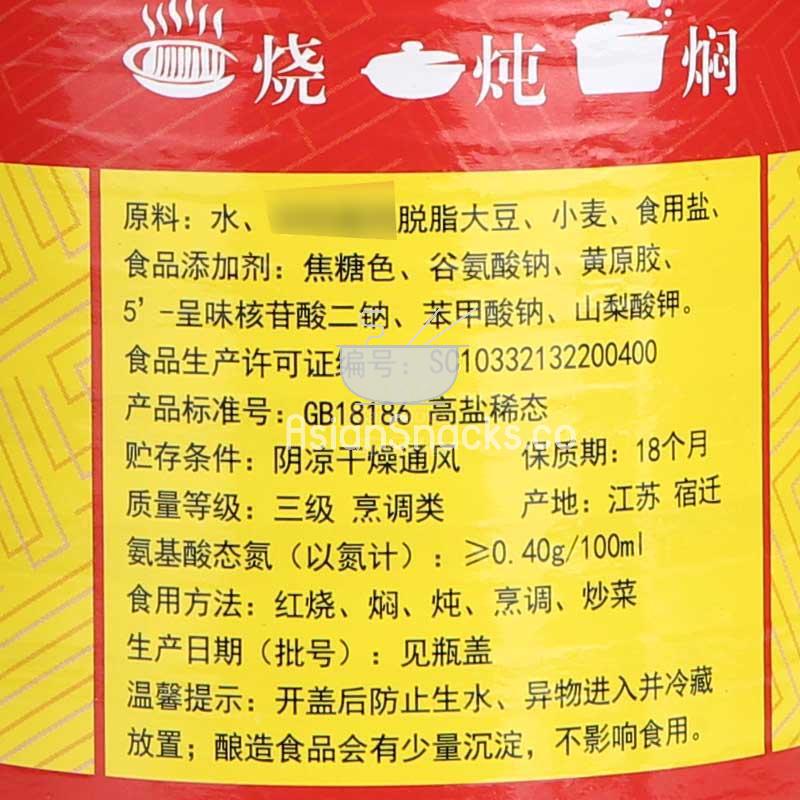 烧 炖 焖
原料：水、脱脂大豆、小麦、食用盐、
食品添加剂：焦糖色、谷氨酸钠、黄原胶、
5'-呈味核苷酸二钠、苯甲酸钠、山梨酸钾。
食品生产许可证编号：SC10332132200400
产品标准号：GB18186 高盐稀态
AsianSnacks.co
贮存条件：阴凉干燥通风 保质期：18个月
质量等级：三级 烹调类 产地：江苏 宿迁
氨基酸态氮（以氮计）：≥0.40g/100ml
食用方法：红烧、焖、炖、烹调、炒菜
生产日期（批号）：见瓶盖
温馨提示：开盖后防止生水、异物进入并冷藏
放置；酿造食品会有少量沉淀，不影响食用。